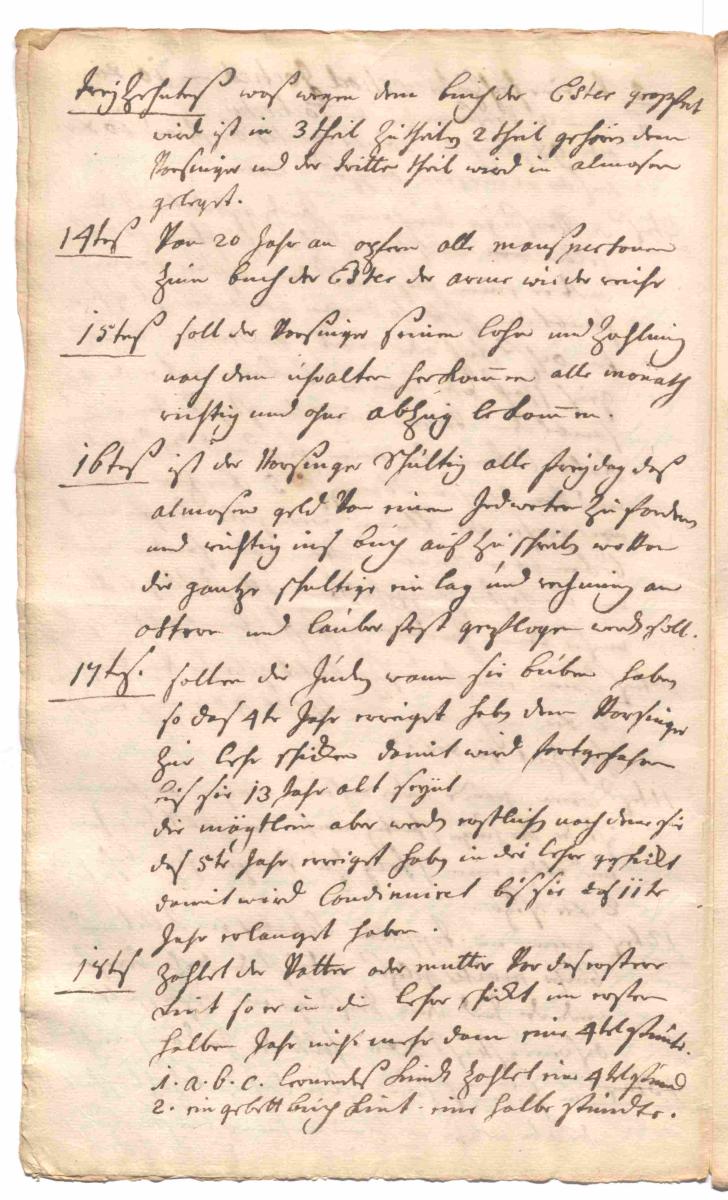 dreÿzehntes was wegen dem buch der Ester geopfert
wird ist in 3 theil zu theilen 2 theil gehören dem
Vorsinger und der dritte theil wird in almosen
geleget.
14tes Von 20 Jahr an opfern alle manspersonen
zum buch der Ester der arme wie der reiche
15tes soll der Vorsinger seinen lohn und Zahlung
nach dem uhralten herkom̄en alle monath
richtig und ohne abzug bekom̄en.
16tes ist der Vorsinger schultig alle freÿdag das
almosen geld Von einem Jedweten zu fordern
und richtig ins buch auf zu schreiben
die gantze schultige ein lag und rechnung an
ostern und lauber fest gepflogen werden soll.
17tes. sollen die Juden wann sie buben haben
so das 4te Jahr erreiget haben dem Vorsinger
zur lehr schicken damit wird fortgefahren
bis sie 13 Jahr alt seÿnt
die mägtlein aber werden erstlich nach deme sie
das 5te Jahr erreiget haben in die lehr geschickt
damit wird Condinuiret bis sie das 11te
Jahr erlanget haben.
18tes zahlet der Vatter oder mutter Vor das erstere
kint so er in die lehr schickt im ersten
halben Jahr nicht mehr dann eine 4tel stunte.
1. a. b. c. lernendes kindt zahlet eine 4tel stund
2. ein gebett buch kint. eine halbe stundte.